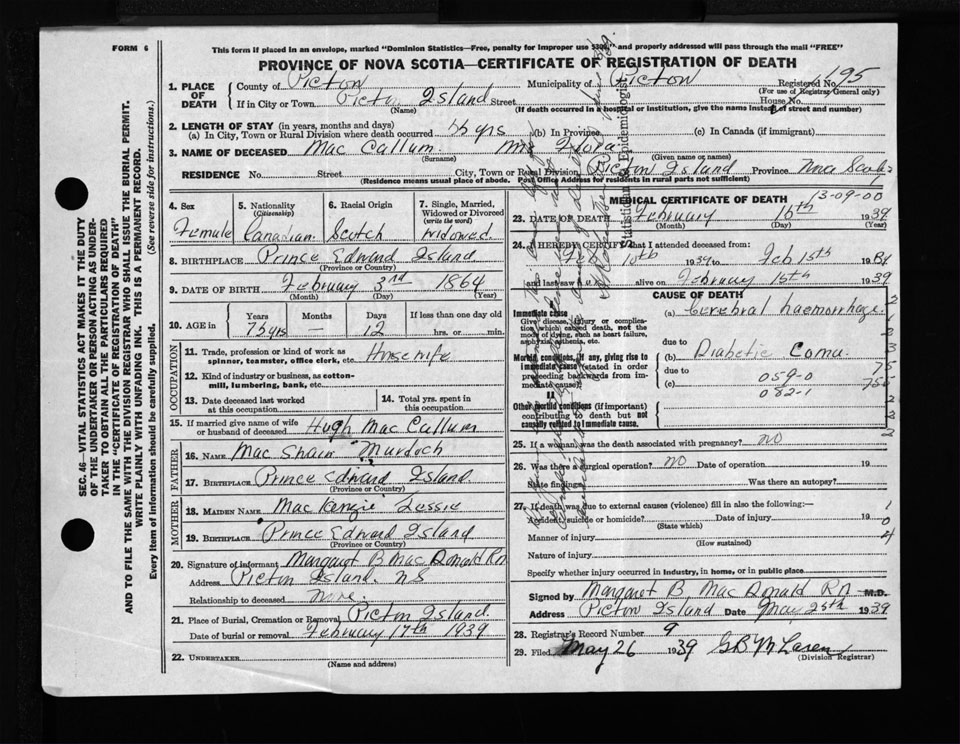 FORM 6
This form if placed in an envelope, marked "Dominion Statistics—Free, penalty for improper use $300," and properly addressed will pass through the mail "FREE"
PROVINCE OF NOVA SCOTIA—CERTIFICATE OF REGISTRATION OF DEATH
1. PLACE OF DEATH
County of Picton Municipality of Picton Registered No. 495
(For use of Registrar General only)
If in City or Town Picton Island Street House No.
(Name) (If death occurred in a hospital or institution, give the name instead of street and number)
2. LENGTH OF STAY (in years, months and days)
(a) In City, Town or Rural Division where death occurred 55 yrs (b) In Province (c) In Canada (if immigrant)
3. NAME OF DECEASED Mac Callum Mrs Flora
(Surname) (Given name or names)
RESIDENCE No. Street City, Town or Rural Division Picton Island Province Nova Scotia
(Residence means usual place of abode. Post Office Address for residents in rural parts not sufficient)
4. Sex Female
5. Nationality (Citizenship) Canadian
6. Racial Origin Scotch
7. Single, Married, Widowed or Divorced (write the word) widowed
8. BIRTHPLACE Prince Edward Island
(Province or Country)
9. DATE OF BIRTH February 3rd 1864
(Month) (Day) (Year)
10. AGE in Years Months Days If less than one day old
75 yrs — 12 hrs. or min.
OCCUPATION
11. Trade, profession or kind of work as spinner, teamster, office clerk, etc. Housewife
12. Kind of industry or business, as cotton-mill, lumbering, bank, etc.
13. Date deceased last worked at this occupation
14. Total yrs. spent in this occupation
15. If married give name of wife or husband of deceased Hugh Mac Callum
FATHER
16. NAME Mac Shain Murdoch
17. BIRTHPLACE Prince Edward Island
(Province or Country)
MOTHER
18. MAIDEN NAME Mac Kenzie Lessie
19. BIRTHPLACE Prince Edward Island
(Province or Country)
20. Signature of informant Margaret B Mac Donald RN
Address Picton Island, NS
Relationship to deceased None
21. Place of Burial, Cremation or Removal Picton Island
Date of burial or removal February 17th 1939
22. UNDERTAKER
(Name and address)
MEDICAL CERTIFICATE OF DEATH
13-09-00
23. DATE OF DEATH February 15th 1939
(Month) (Day) (Year)
24. I HEREBY CERTIFY that I attended deceased from:
Feb 10th 1939 to Feb 15th 1939
and last saw h alive on February 15th 1939
CAUSE OF DEATH
Immediate cause
Give disease, injury or complication which caused death, not the mode of dying, such as heart failure, asphyxia, asthenia, etc.
(a) Cerebral haemorrhage
due to
Morbid conditions, if any, giving rise to immediate cause (stated in order proceeding backwards from immediate cause)
(b) Diabetic Coma
due to
(c) 059-0
082-1
II
Other morbid conditions (if important) contributing to death but not causally related to immediate cause.
25. If a woman, was the death associated with pregnancy? NO
26. Was there a surgical operation? NO Date of operation 19
State findings Was there an autopsy?
27. If death was due to external causes (violence) fill in also the following:
Accident, suicide or homicide? Date of injury 19
(State which)
Manner of injury
(How sustained)
Nature of injury
Specify whether injury occurred in industry, in home, or in public place
Signed by Margaret B. Mac Donald RN M.D.
Address Picton Island Date May 25th 1939
28. Registrar's Record Number 9
29. Filed May 26 1939 GB McLaren
(Division Registrar)
Statistician Epidemiologist
SEC. 46—VITAL STATISTICS ACT MAKES IT THE DUTY OF THE UNDERTAKER OR PERSON ACTING AS UNDERTAKER TO OBTAIN ALL THE PARTICULARS REQUIRED IN THE "CERTIFICATE OF REGISTRATION OF DEATH" AND TO FILE THE SAME WITH THE DIVISION REGISTRAR WHO SHALL ISSUE THE BURIAL PERMIT.
WRITE PLAINLY WITH UNFADING INK. THIS IS A PERMANENT RECORD.
Every item of information should be carefully supplied. (See reverse side for instructions.)